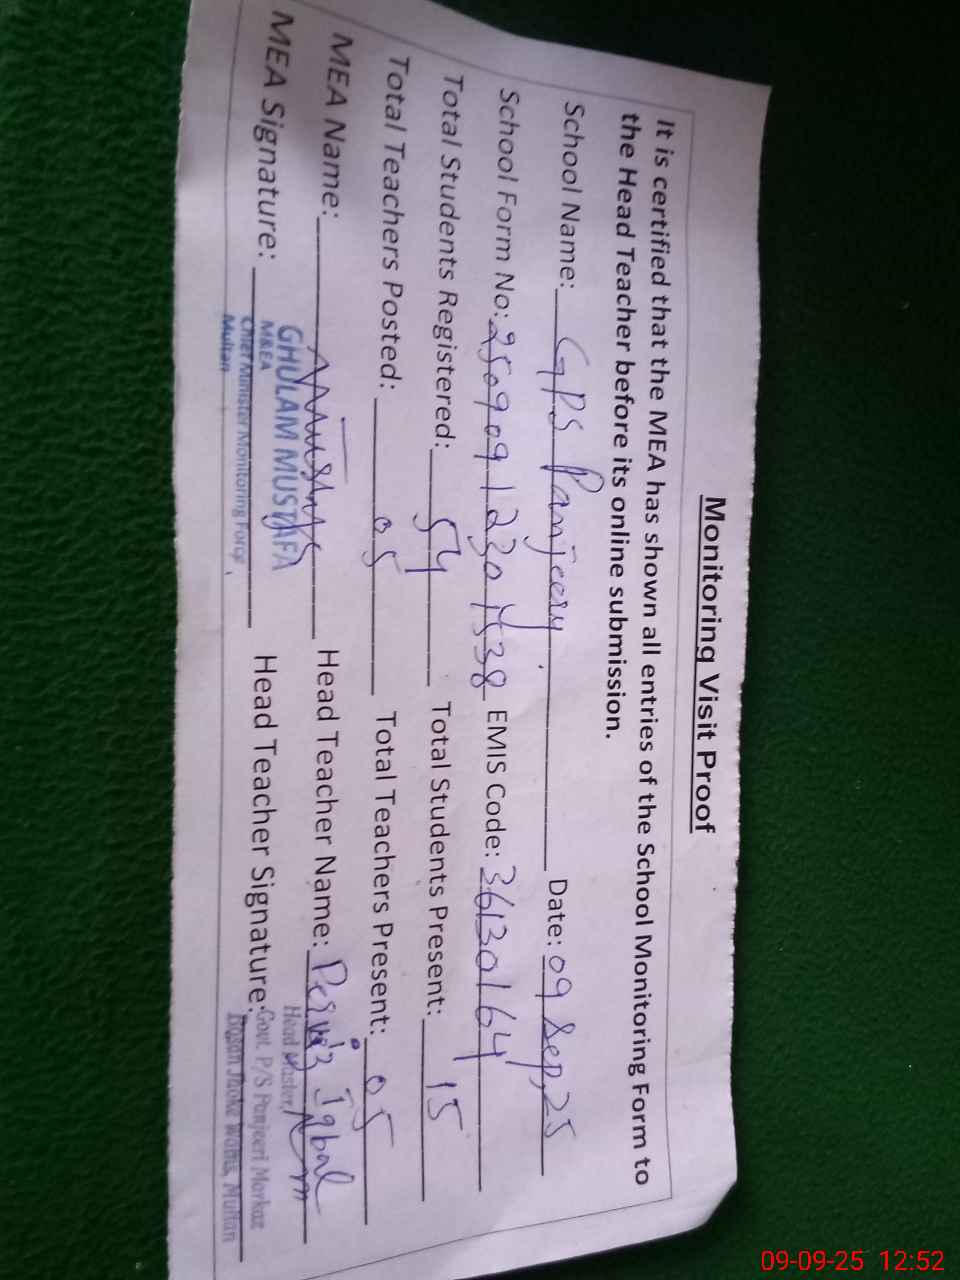 Monitoring Visit Proof
It is certified that the MEA has shown all entries of the School Monitoring Form to
the Head Teacher before its online submission.
School Name: GPS Panjeery Date: 09 Sep, 25
School Form No: EMIS Code: 36130164
Total Students Registered: 54 Total Students Present: 15
Total Teachers Posted: 05 Total Teachers Present: 05
MEA Name: Head Teacher Name: Perviz Iqbal
MEA Signature: Head Teacher Signature:
GHULAM MUSTAFA
M&EA
Chief Minister Monitoring Force
Multan
Head Master
Govt. P/S Panjeeri Markaz
Multan
09-09-25 12:52